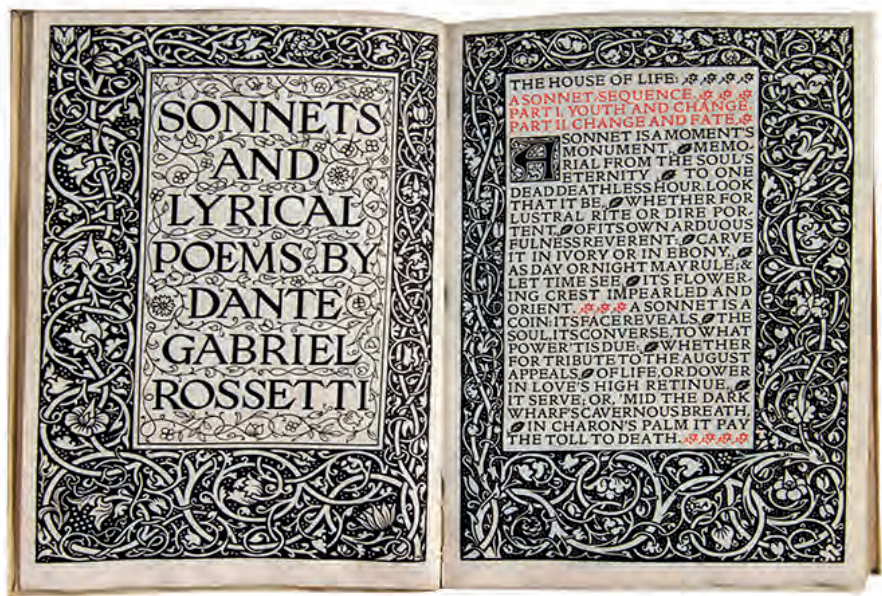 SONNETS
AND
LYRICAL
POEMS BY
DANTE
GABRIEL
ROSSETTI
THE HOUSE OF LIFE:
A SONNET-SEQUENCE.
PART I. YOUTH AND CHANGE.
PART II. CHANGE AND FATE.
A SONNET IS A MOMENT'S
MONUMENT,
MEMO-
RIAL FROM THE SOUL'S
ETERNITY
TO ONE
DEAD DEATHLESS HOUR. LOOK
THAT IT BE,
WHETHER FOR
LUSTRAL RITE OR DIRE POR-
TENT,
OF ITS OWN ARDUOUS
FULNESS REVERENT:
CARVE
IT IN IVORY OR IN EBONY,
AS DAY OR NIGHT MAY RULE; &
LET TIME SEE
ITS FLOWER-
ING CREST IMPEARLED AND
ORIENT.
A SONNET IS A
COIN: ITS FACE REVEALS
THE
SOUL, ITS CONVERSE, TO WHAT
POWER 'TIS DUE:
WHETHER
FOR TRIBUTE TO THE AUGUST
APPEALS
OF LIFE, OR DOWER
IN LOVE'S HIGH RETINUE,
IT SERVE; OR, 'MID THE DARK
WHARF'S CAVERNOUS BREATH,
IN CHARON'S PALM IT PAY
THE TOLL TO DEATH.